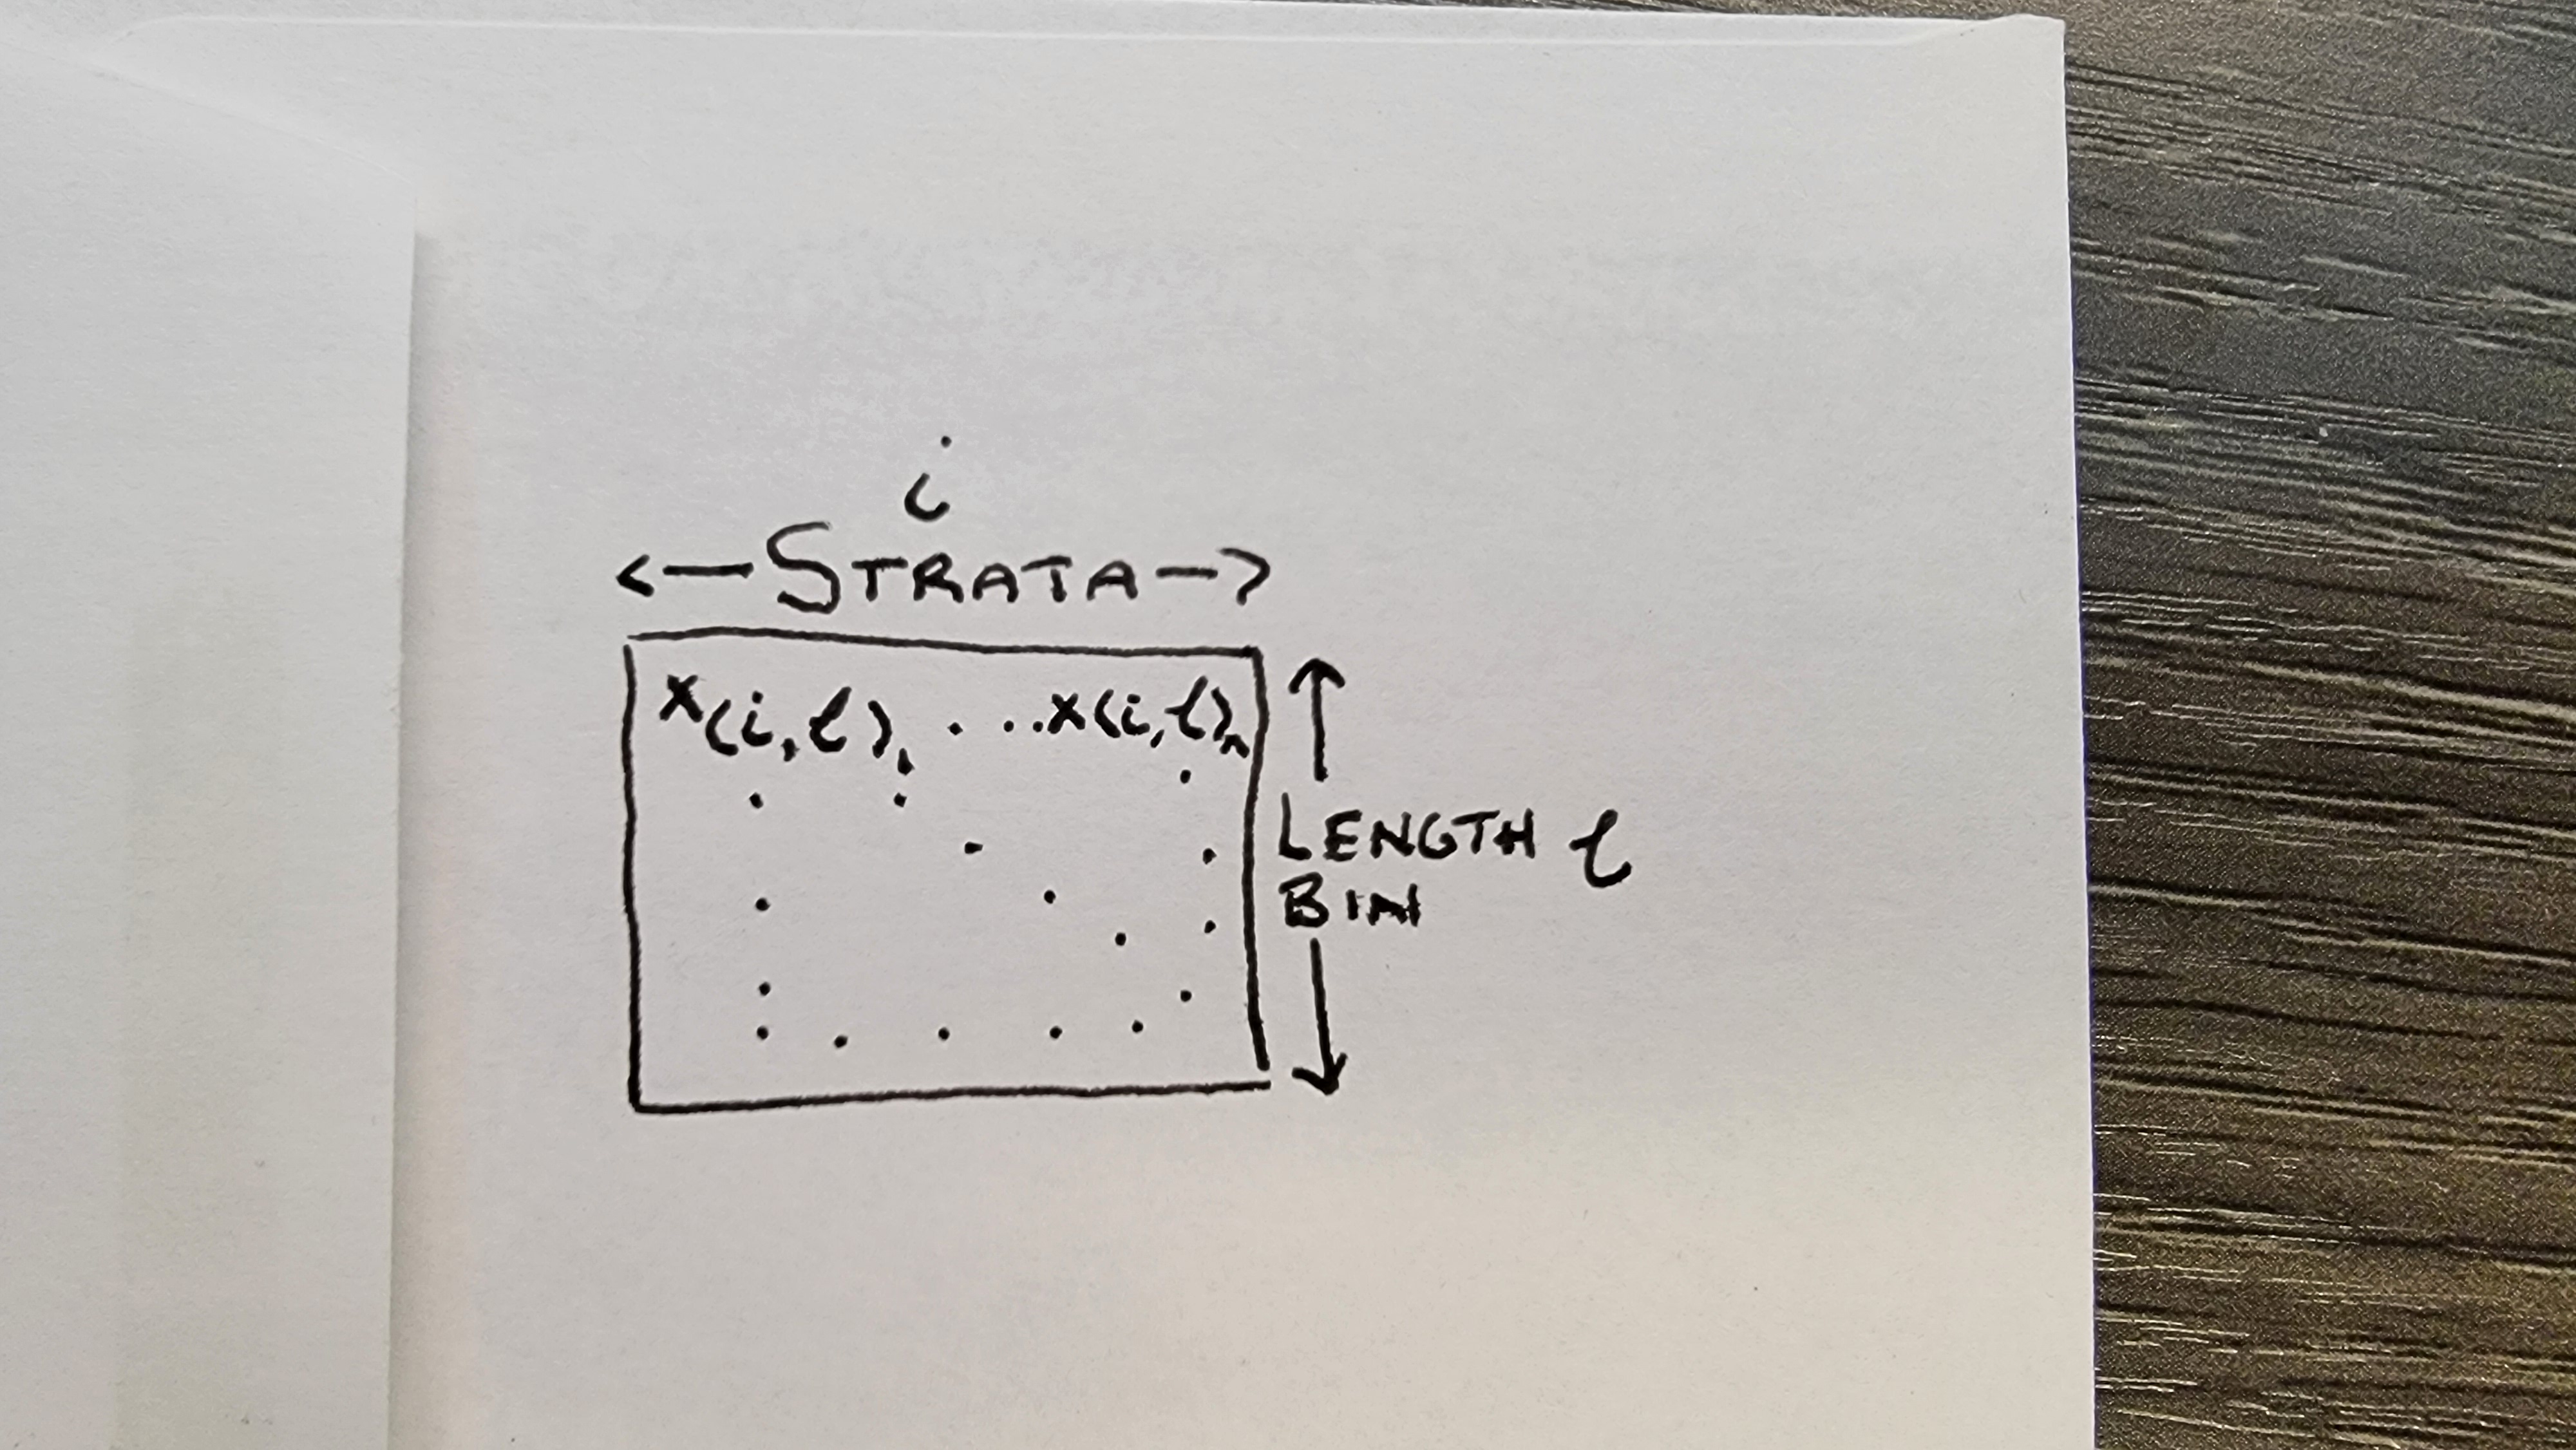 i
← STRATA →
x(i,ℓ), . . . x(i,ℓ)n
LENGTH ℓ
BIN